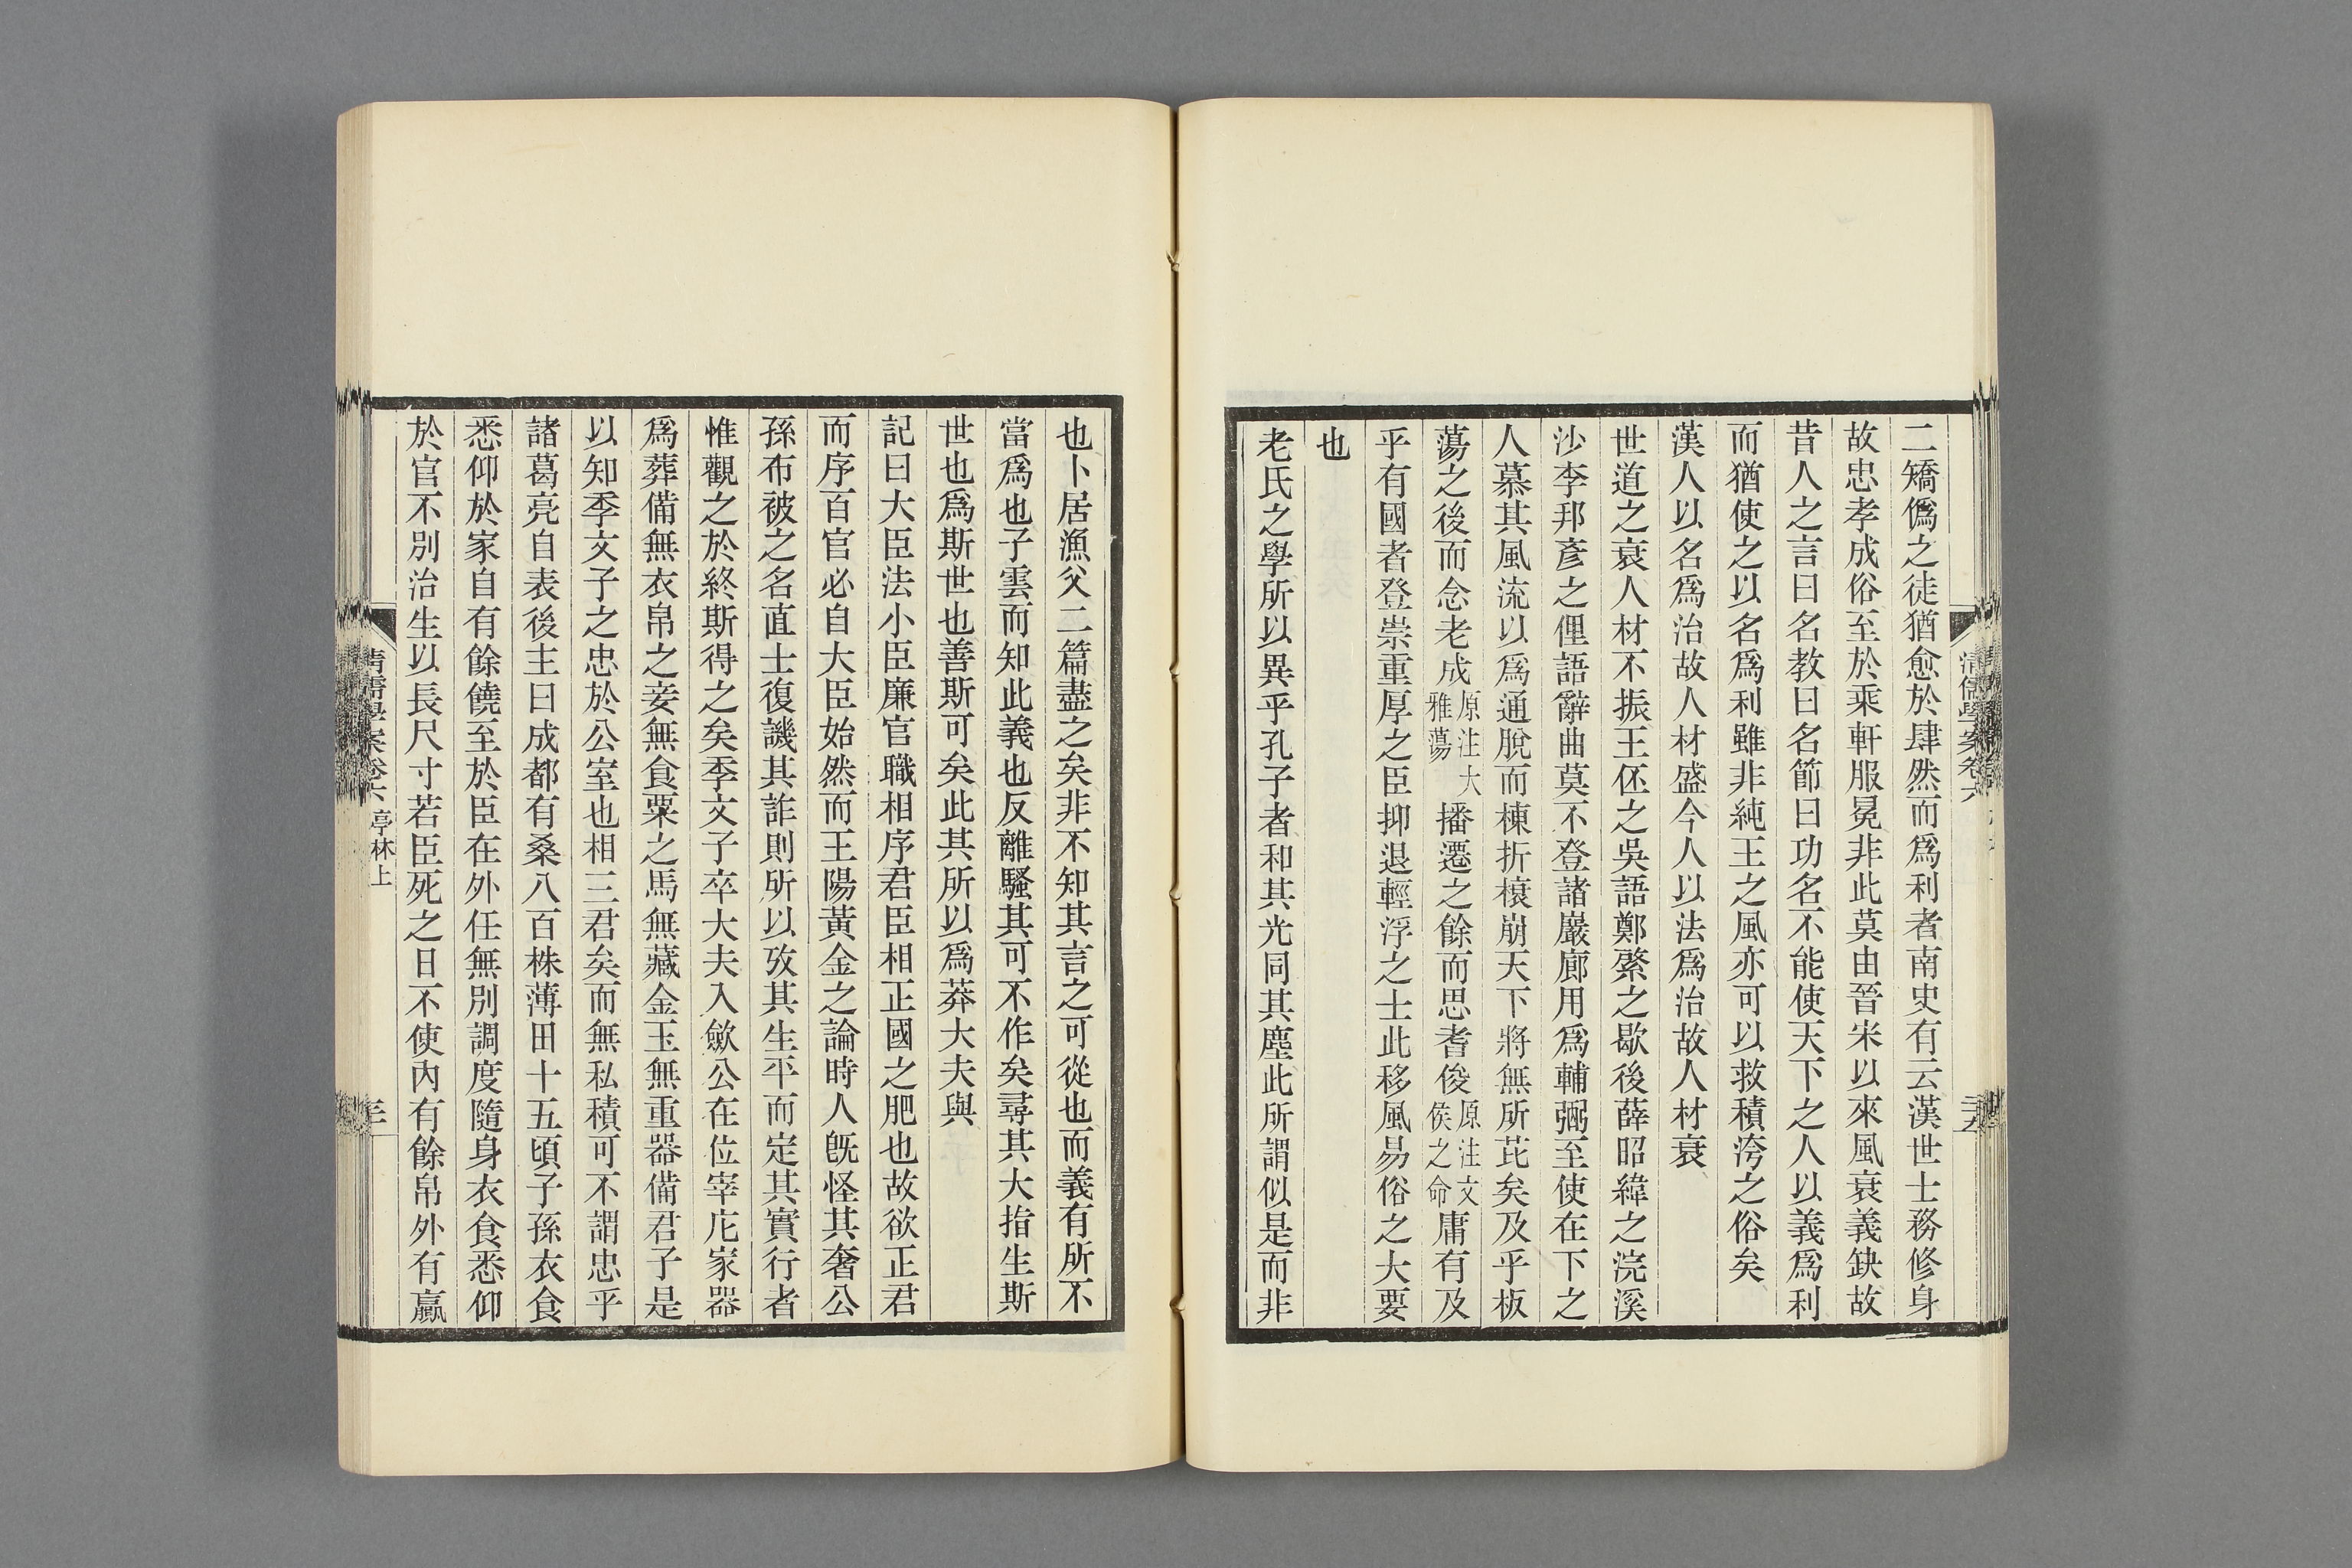 二矯僞之徒猶愈於肆然而爲利者南史有云漢世士務修身
故忠孝成俗至於乘軒服冕非此莫由晉宋以來風衰義缺故
昔人之言曰名教曰名節曰功名不能使天下之人以義爲利
而猶使之以名爲利雖非純王之風亦可以救積洿之俗矣
漢人以名爲治故人材盛今人以法爲治故人材衰
世道之衰人材不振王伾之吳語鄭綮之歇後薛昭緯之浣溪
沙李邦彥之俚語辭曲莫不登諸巖廊用爲輔弼至使在下之
人慕其風流以爲通脫而棟折榱崩天下將無所芘矣及乎板
蕩之後而念老成原注大雅蕩播遷之餘而思耆俊原注文侯之命庸有及
乎有國者登崇重厚之臣抑退輕浮之士此移風易俗之大要
也
老氏之學所以異乎孔子者和其光同其塵此所謂似是而非
也卜居漁父二篇盡之矣非不知其言之可從也而義有所不
當爲也子雲而知此義也反離騷其可不作矣尋其大指生斯
世也爲斯世也善斯可矣此其所以爲莽大夫與
記曰大臣法小臣廉官職相序君臣相正國之肥也故欲正君
而序百官必自大臣始然而王陽黃金之論時人既怪其奢公
孫布被之名直士復譏其詐則所以攷其生平而定其實行者
惟觀之於終斯得之矣季文子卒大夫入斂公在位宰庀家器
爲葬備無衣帛之妾無食粟之馬無藏金玉無重器備君子是
以知季文子之忠於公室也相三君矣而無私積可不謂忠乎
諸葛亮自表後主曰成都有桑八百株薄田十五頃子孫衣食
悉仰於家自有餘饒至於臣在外任無別調度隨身衣食悉仰
於官不別治生以長尺寸若臣死之日不使內有餘帛外有贏
清儒學案卷六 亭林上